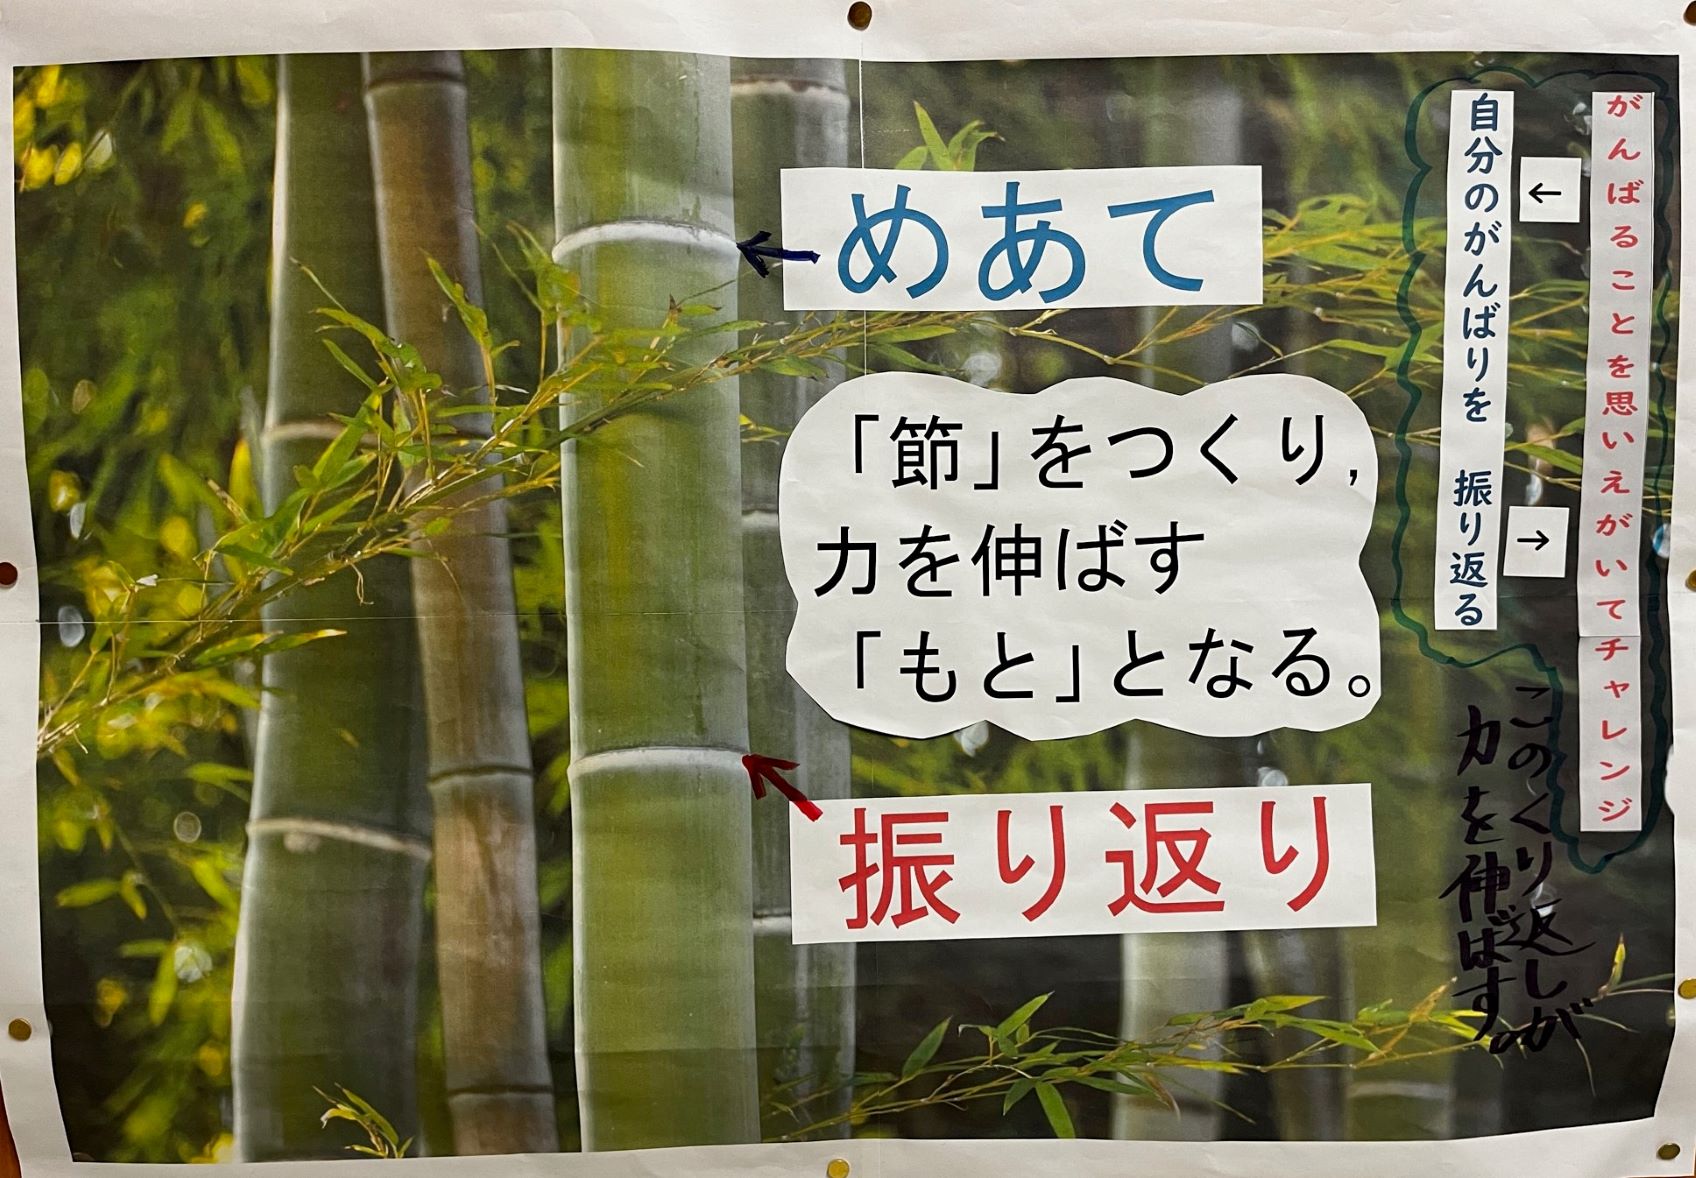 めあて
「節」をつくり,
力を伸ばす
「もと」となる。
振り返り
がんばることを思いえがいてチャレンジ
←
→
自分のがんばりを 振り返る
このくり返しが
力を伸ばす。